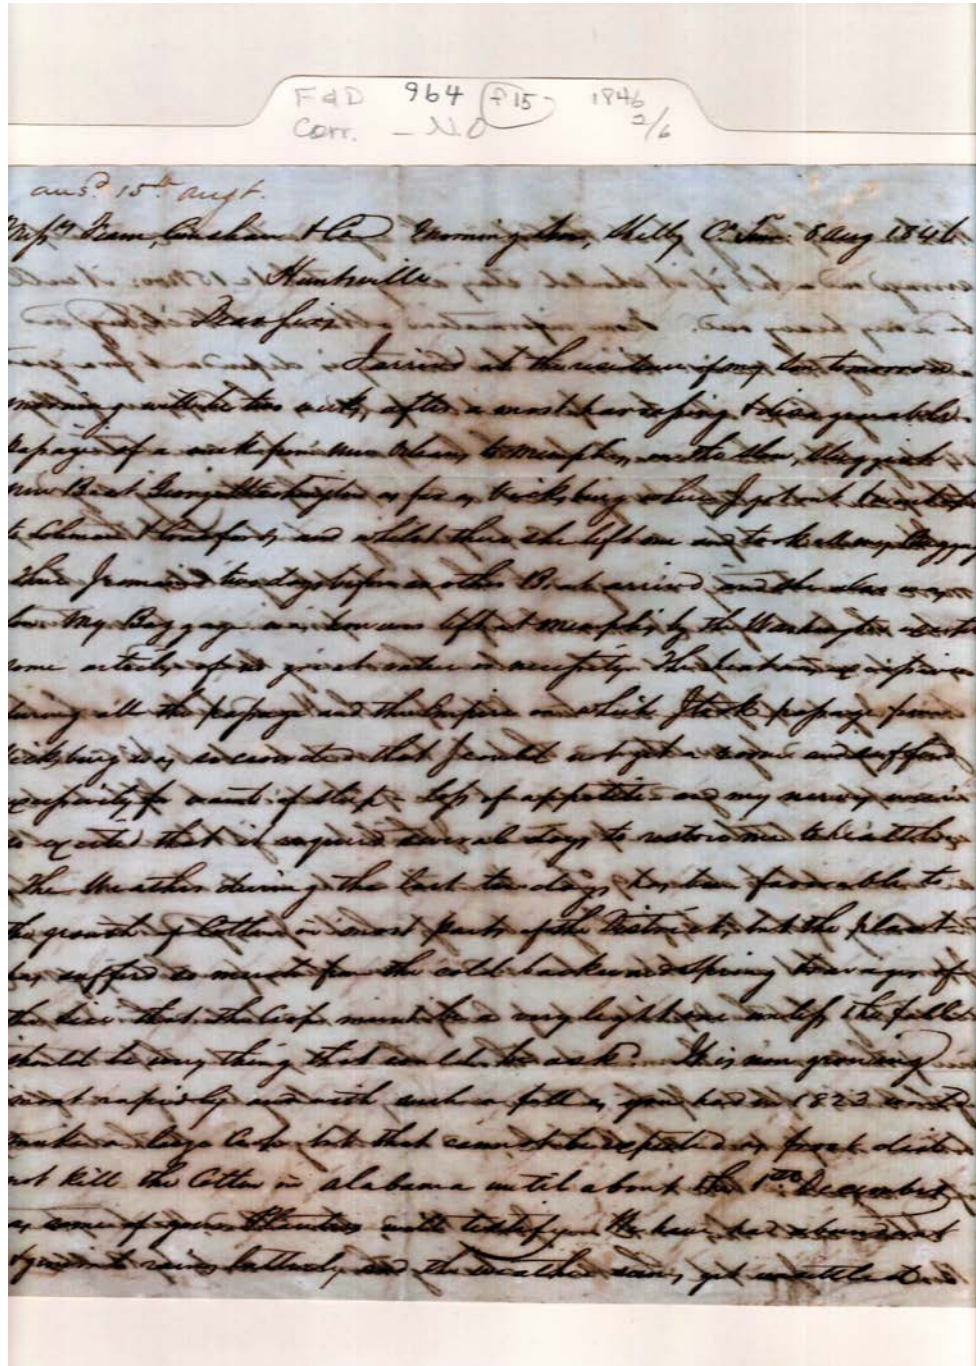 F & D 964 f 15 1846
Corr. - N.O 2/6
ansd 15th Augt.
Messrs & Co Morning Sun, Shelby Cy Ten: 8 Aug 1846
Huntsville
Dear Sirs
I arrived at the residence of my Son tomorrow
morning will be two weeks, after a most harassing & disagreeable
passage of a week from New Orleans to Memphis, on the slow, sluggish
new Boat George Washington as far as Vicksburg where I got out
to and whilst there she left me and took all my Baggage
Here I remained two days before another Boat arrived and she also was
My Baggage was left at Memphis by the Washington
some articles of no great value or necessity. The heat was
during all the passage and the Empire on which I took passage from
Vicksburg was so crowded that I could not get a room and suffered
excessively for want of sleep - loss of appetite - and my nerves were
so excited that it required several days to restore me to health.
The Weather during the last ten days has been favorable to
the growth of Cotton in most parts of the District, but the plant
has suffered so much from the cold backward Spring & ravages of
the lice that the Crop must be a very light one unless the fall
should be every thing that could be ask'd. It is now growing
most rapidly and with such a fall as you had in 1823 would
make a large Crop but that cannot be expected as frost did
not kill the Cotton in Alabama until about the 1st December
as some of your Planters will testify. We have had abundant
rains latterly, and the weather seems yet unsettled.